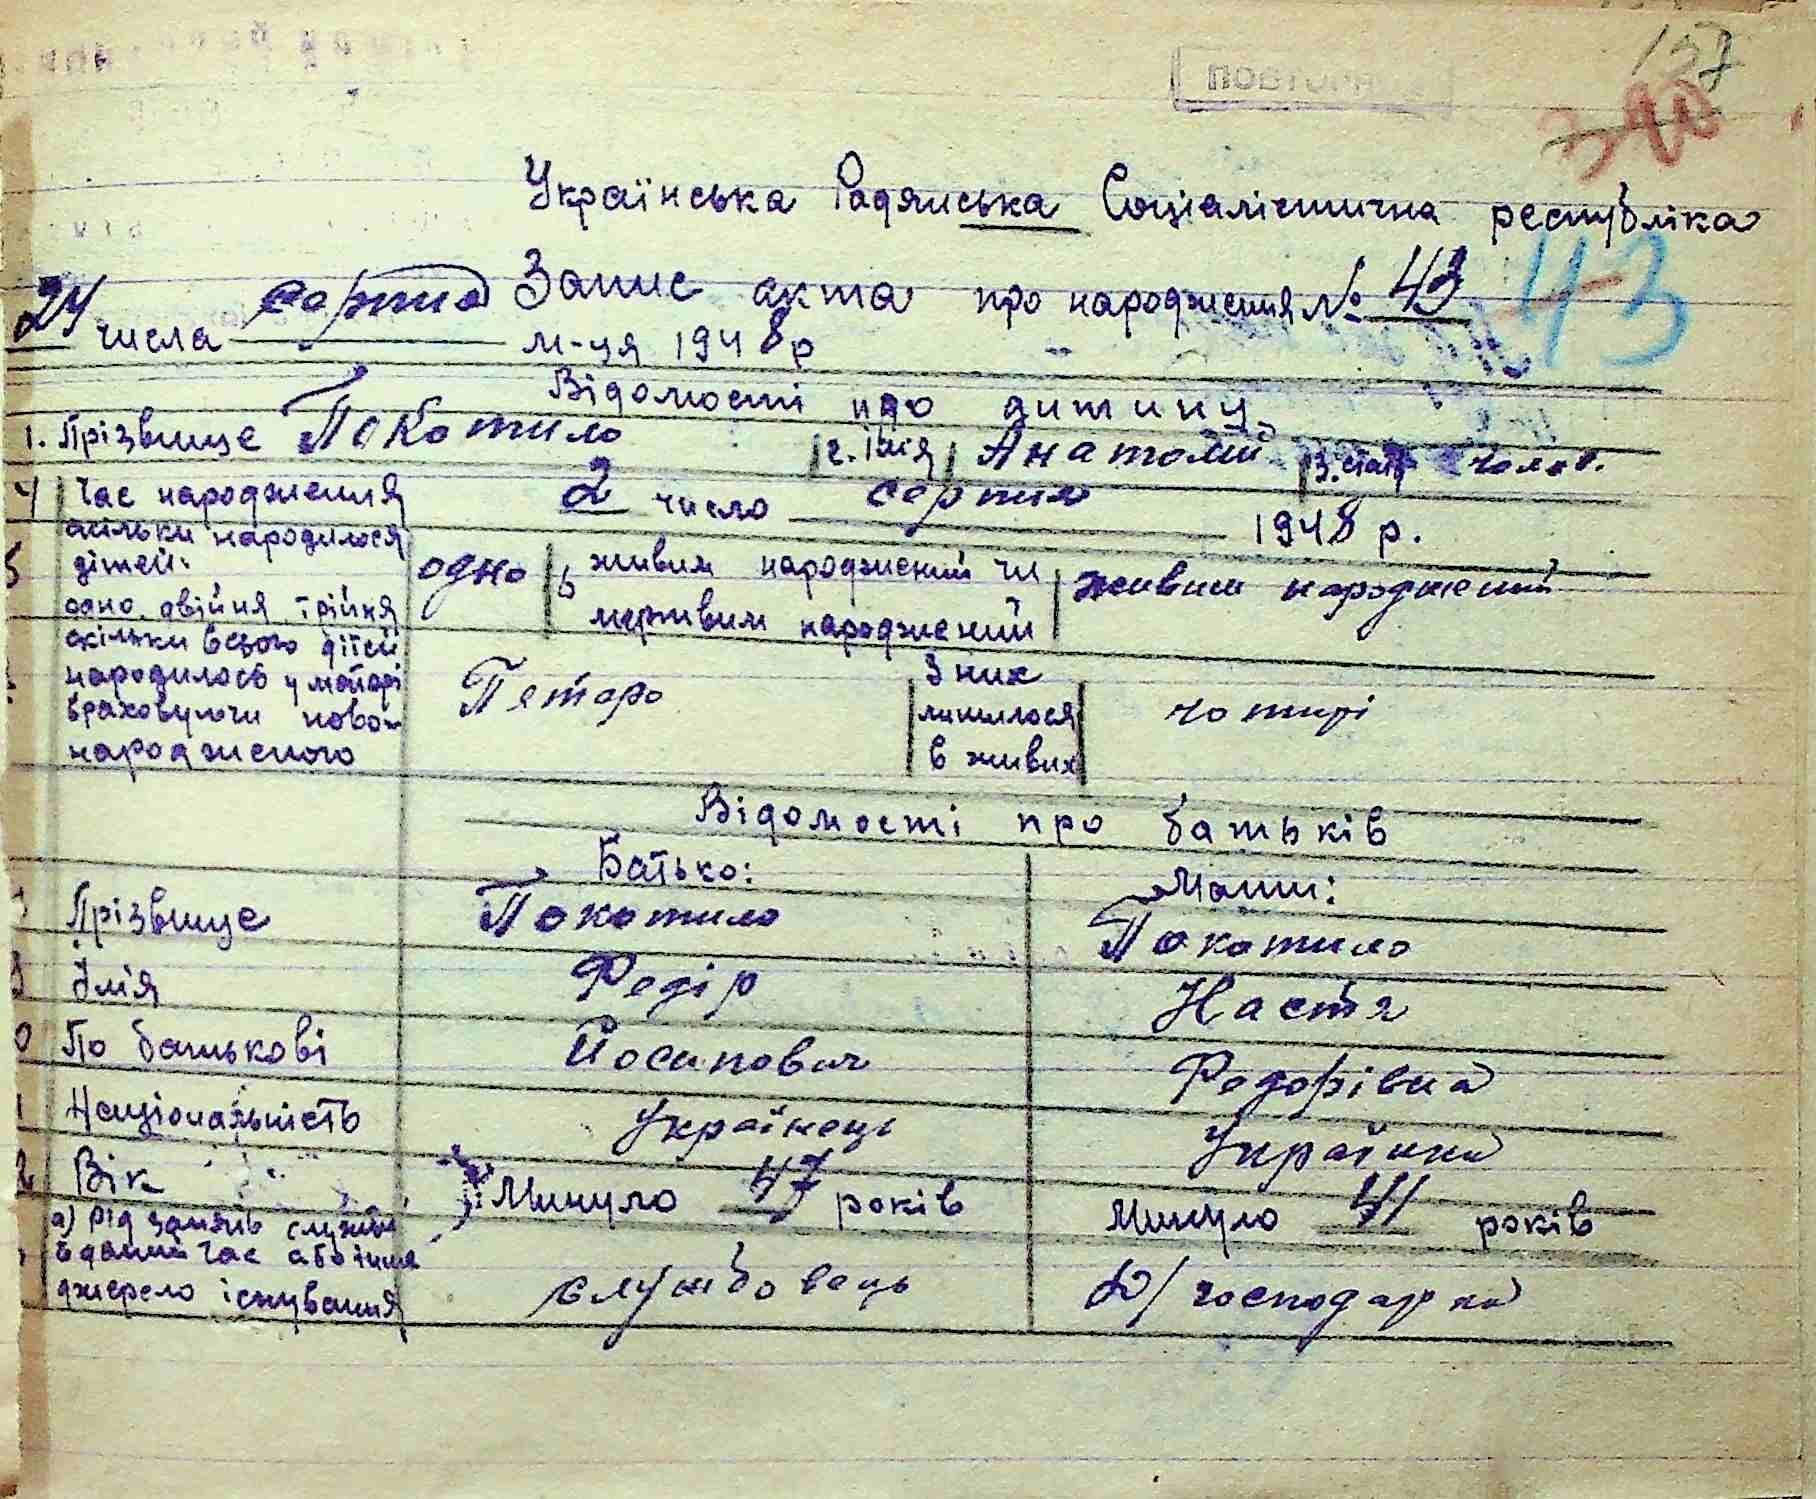 127
Українська Радянська Соціалістична республіка
Запис акта про народження № 43 43
24 числа серпня м-ця 1948 р
Відомості про дитину
1. Прізвище Покотило 2. Імія Анатолій 3. стать чолов.
4 Час народження 2 число серпня 1948 р.
5 скільки народилося дітей: одно, двійня, трійня одно 6 живим народжений чи мертвим народжений живим народжений
скільки всього дітей народилось у матері враховуючи ново-народженого Пятеро З них лишилося в живих чотирі
Відомості про батьків
Батько: Мати:
Прізвище Покотило Покотило
Імія Федір Настя
По батькові Йосипович Федорівна
Національність Українець Українка
Вік Минуло 47 років Минуло 41 років
а) рід занять служби в даний час або інше джерело існування службовець Д/господарка